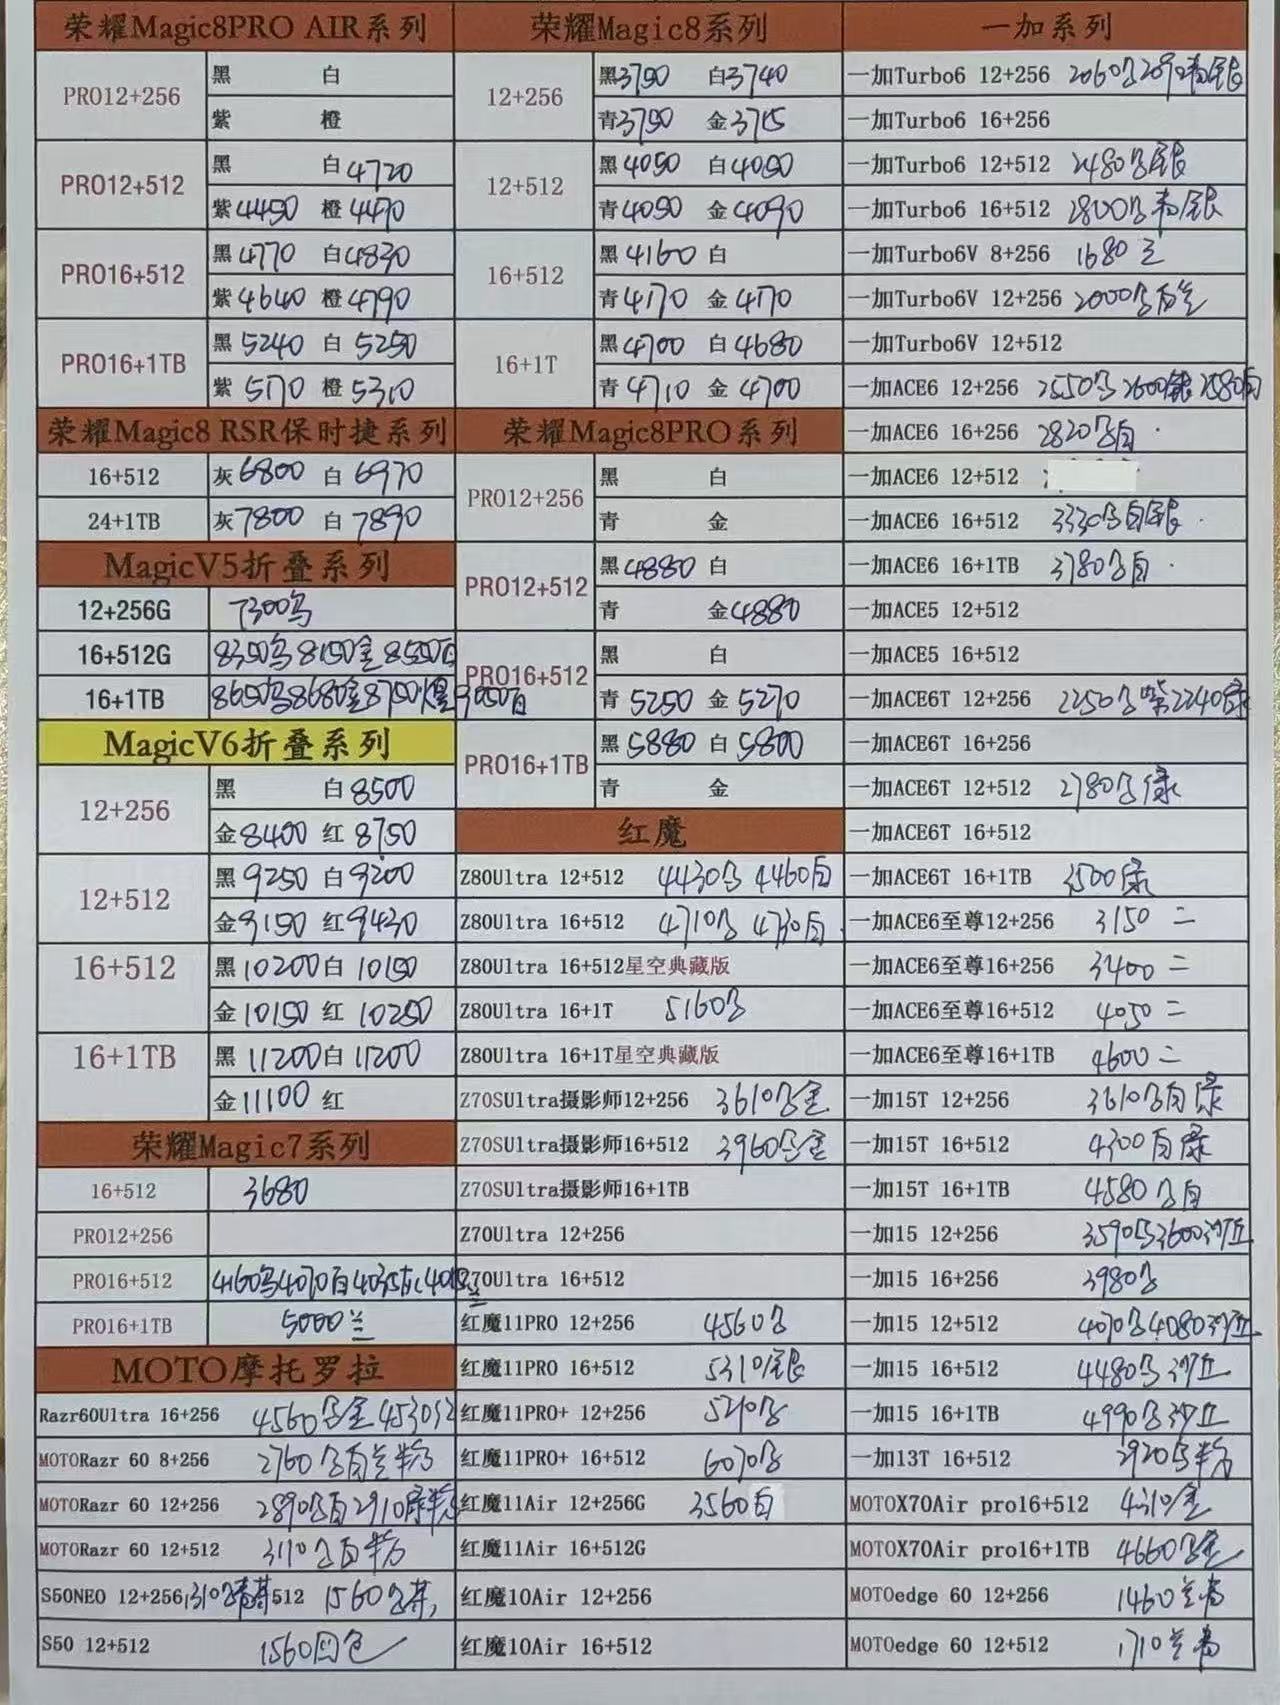 荣耀Magic8PRO AIR系列
PRO12+256 黑 白
紫 橙
PRO12+512 黑 白4720
紫4450 橙4470
PRO16+512 黑4770 白4830
紫4640 橙4790
PRO16+1TB 黑5240 白5250
紫5170 橙5310
荣耀Magic8 RSR保时捷系列
16+512 灰6800 白6970
24+1TB 灰7800 白7890
MagicV5折叠系列
12+256G 7300
16+512G 8350 8150金 8550白
16+1TB 8650 8680金8750 9050白
MagicV6折叠系列
12+256 黑 白8500
金8400 红8750
12+512 黑9250 白9200
金9150 红9430
16+512 黑10200 白10150
金10150 红10250
16+1TB 黑11200 白11200
金11100 红
荣耀Magic7系列
16+512 3680
PRO12+256
PRO16+512 4160 4070白4035
PRO16+1TB 5000兰
MOTO摩托罗拉
Razr60Ultra 16+256 4560 金 4530
MOTORazr 60 8+256 2760 白兰
MOTORazr 60 12+256 2890 白2910绿
MOTORazr 60 12+512 3110 白
S50NEO 12+256 1310 512 1560
S50 12+512 1560
荣耀Magic8系列
12+256 黑3790 白3740
青3750 金3715
12+512 黑4050 白4050
青4050 金4090
16+512 黑4160 白
青4170 金4170
16+1T 黑4700 白4680
青4710 金4700
荣耀Magic8PRO系列
PRO12+256 黑 白
青 金
PRO12+512 黑4880 白
青 金4880
PRO16+512 黑 白
青5250 金5270
PRO16+1TB 黑5880 白5800
青 金
红魔
Z80Ultra 12+512 4430 4460白
Z80Ultra 16+512 4710 4730白
Z80Ultra 16+512星空典藏版
Z80Ultra 16+1T 5160
Z80Ultra 16+1T星空典藏版
Z70SUltra摄影师12+256 3610 金
Z70SUltra摄影师16+512 3960 金
Z70SUltra摄影师16+1TB
Z70Ultra 12+256
Z70Ultra 16+512
红魔11PRO 12+256 4560
红魔11PRO 16+512 5310银
红魔11PRO+ 12+256 5210
红魔11PRO+ 16+512 6070
红魔11Air 12+256G 3560白
红魔11Air 16+512G
红魔10Air 12+256
红魔10Air 16+512
一加系列
一加Turbo6 12+256 2060 银
一加Turbo6 16+256
一加Turbo6 12+512 2480 银
一加Turbo6 16+512 2800 银
一加Turbo6V 8+256 1680 兰
一加Turbo6V 12+256 2000 兰
一加Turbo6V 12+512
一加ACE6 12+256 2550 2600银 2580白
一加ACE6 16+256 2820 白
一加ACE6 12+512
一加ACE6 16+512 3330 白银
一加ACE6 16+1TB 3780 白
一加ACE5 12+512
一加ACE5 16+512
一加ACE6T 12+256 2250 紫2240绿
一加ACE6T 16+256
一加ACE6T 12+512 2780 绿
一加ACE6T 16+512
一加ACE6T 16+1TB 3500绿
一加ACE6至尊12+256 3150 二
一加ACE6至尊16+256 3400 二
一加ACE6至尊16+512 4050 二
一加ACE6至尊16+1TB 4600 二
一加15T 12+256 3610 白绿
一加15T 16+512 4300白绿
一加15T 16+1TB 4580 白
一加15 12+256 3590 3600沙丘
一加15 16+256 3980
一加15 12+512 4070 4080沙丘
一加15 16+512 4480 沙丘
一加15 16+1TB 4990 沙丘
一加13T 16+512 2920
MOTOX70Air pro16+512 4310金
MOTOX70Air pro16+1TB 4660 金
MOTOedge 60 12+256 1460兰
MOTOedge 60 12+512 1710兰